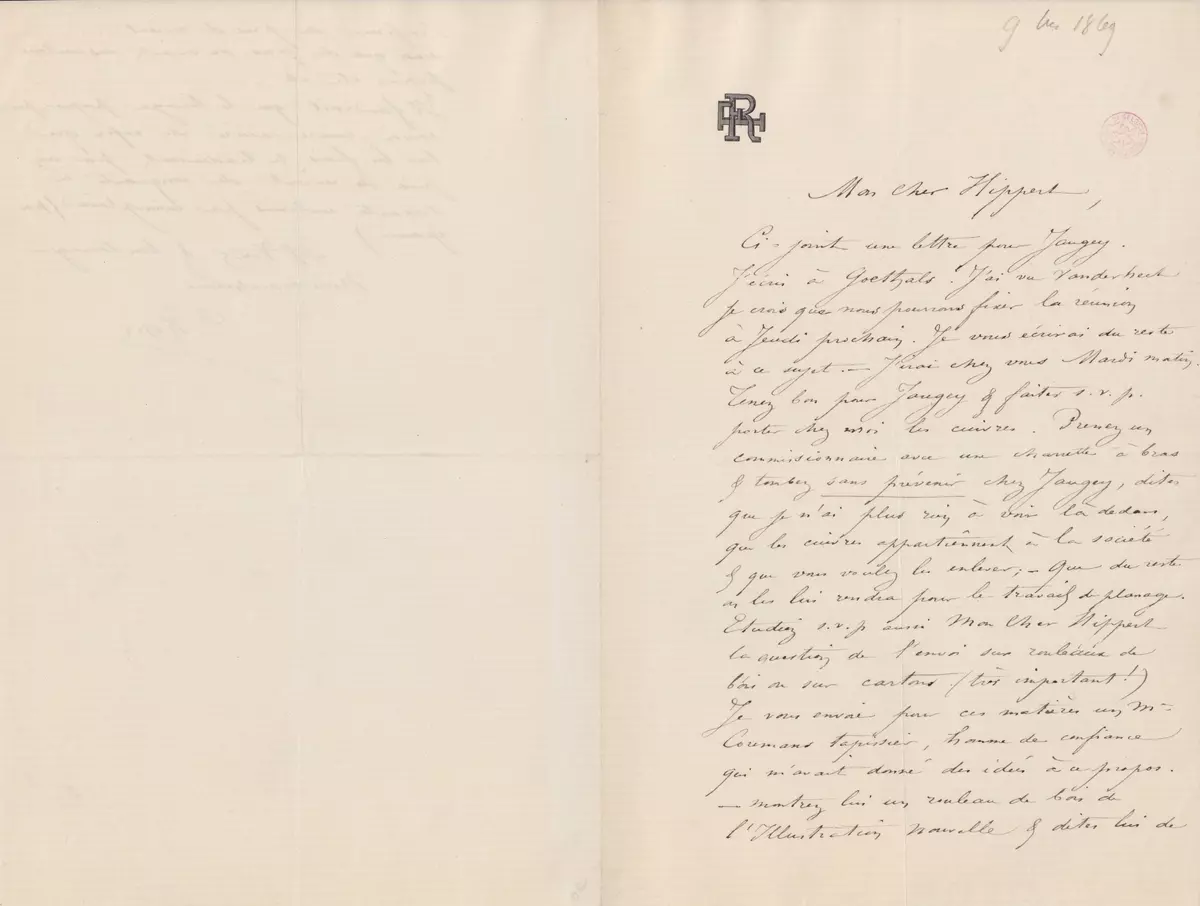 9 bre 1869
RH
Mon cher Hippert,
Ci-joint une lettre pour Jaugey.
J'écris à Goethals. J'ai vu Vanderhecht
je crois que nous pourrons fixer la réunion
à Jeudi prochain. Je vous écrirai du reste
à ce sujet. — J'irai chez vous Mardi matin.
Tenez bon pour Jaugey & faites s.v.p.
porter chez moi les cuivres. Prenez un
commissionnaire avec une charrette à bras
& tombez sans prévenir chez Jaugey, dites
que je n'ai plus rien à voir là dedans,
que les cuivres appartiennent à la société
& que vous voulez les enlever; — que du reste
on les lui rendra pour le travail de planage.
Etudiez s.v.p aussi Mon Cher Hippert
la question de l'envoi sur rouleaux de
bois ou sur cartons (très important!)
Je vous envoie pour ces matières un Mr
Coremans tapissier, homme de confiance
qui m'avait donné des idées à ce propos.
— montrez lui un rouleau de bois de
l'Illustration nouvelle & dites lui de